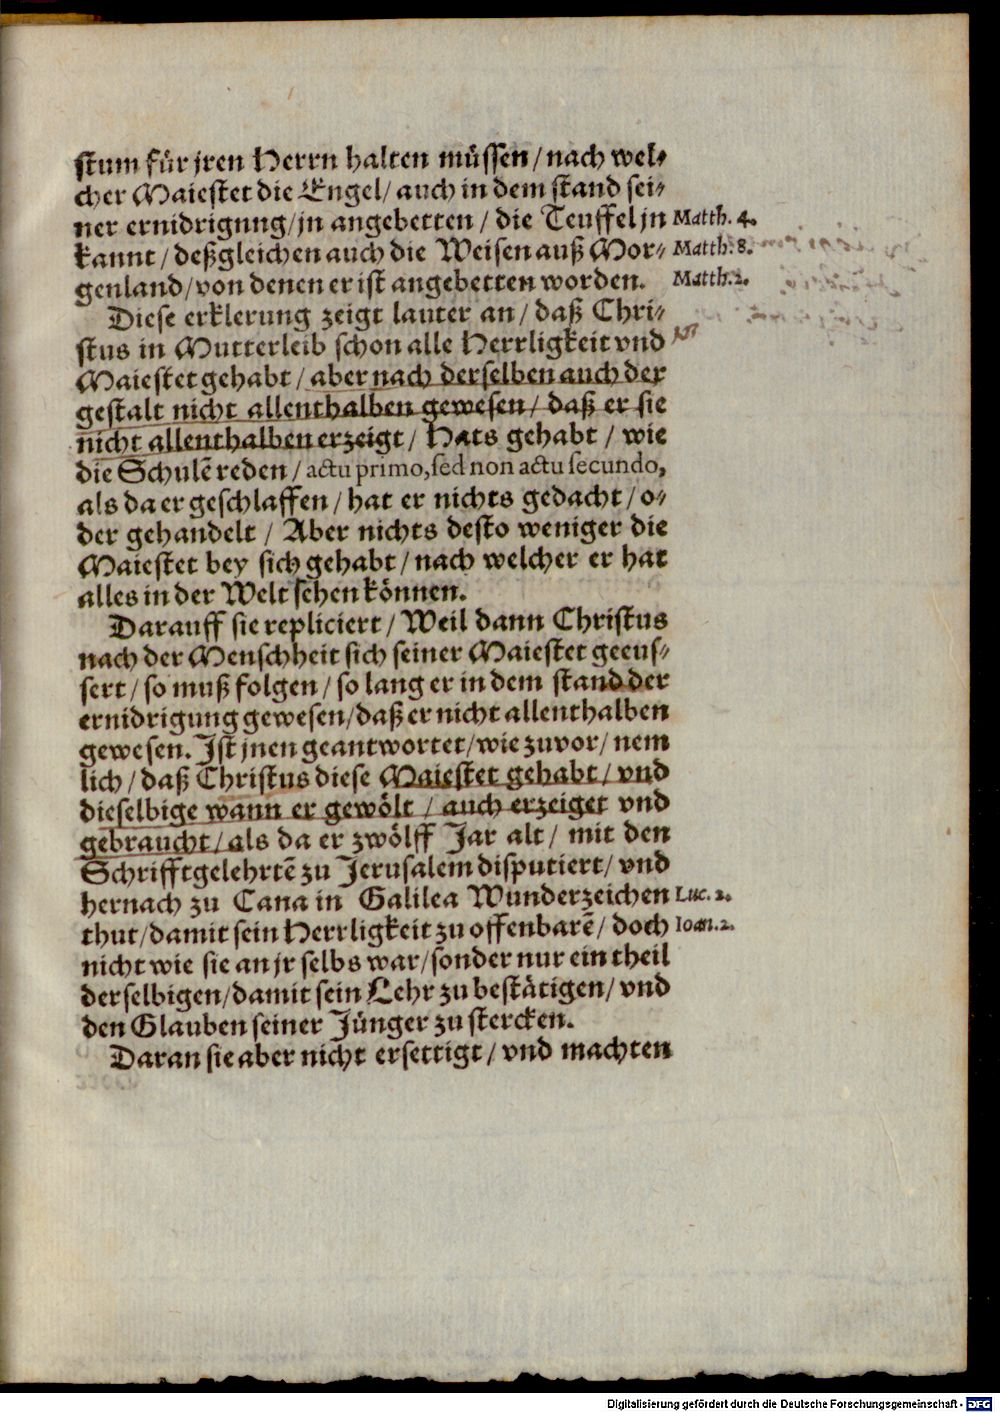 stum für jren Herrn halten müssen / nach wel-
cher Maiestet die Engel / auch in dem stand sei-
ner ernidrigung / jn angebetten / die Teuffel jn Matth. 4.
kannt / deßgleichen auch die Weisen auß Mor- Matth. 8.
genland / von denen er ist angebetten worden. Matth. 2.
Diese erklerung zeigt lauter an / daß Chri-
stus in Mutterleib schon alle Herrligkeit vnd
Maiestet gehabt / aber nach derselben auch der
gestalt nicht allenthalben gewesen / daß er sie
nicht allenthalben erzeigt / Hats gehabt / wie
die Schulẽ reden / actu primo, sed non actu secundo,
als da er geschlaffen / hat er nichts gedacht / o-
der gehandelt / Aber nichts desto weniger die
Maiestet bey sich gehabt / nach welcher er hat
alles in der Welt sehen können.
Darauff sie repliciert / Weil dann Christus
nach der Menschheit sich seiner Maiestet geeus-
sert / so muß folgen / so lang er in dem stand der
ernidrigung gewesen / daß er nicht allenthalben
gewesen. Ist jnen geantwortet / wie zuvor / nem
lich / daß Christus diese Maiestet gehabt / vnd
dieselbige wann er gewölt / auch erzeiget vnd
gebraucht / als da er zwölff Jar alt / mit den
Schrifftgelehrtẽ zu Jerusalem disputiert / vnd
hernach zu Cana in Galilea Wunderzeichen Luc. 2.
thut / damit sein Herrligkeit zu offenbarẽ / doch Ioan. 2.
nicht wie sie an jr selbs war / sonder nur ein theil
derselbigen / damit sein Lehr zu bestätigen / vnd
den Glauben seiner Jünger zu stercken.
Daran sie aber nicht ersettigt / vnd machten
Digitalisierung gefördert durch die Deutsche Forschungsgemeinschaft - DFG